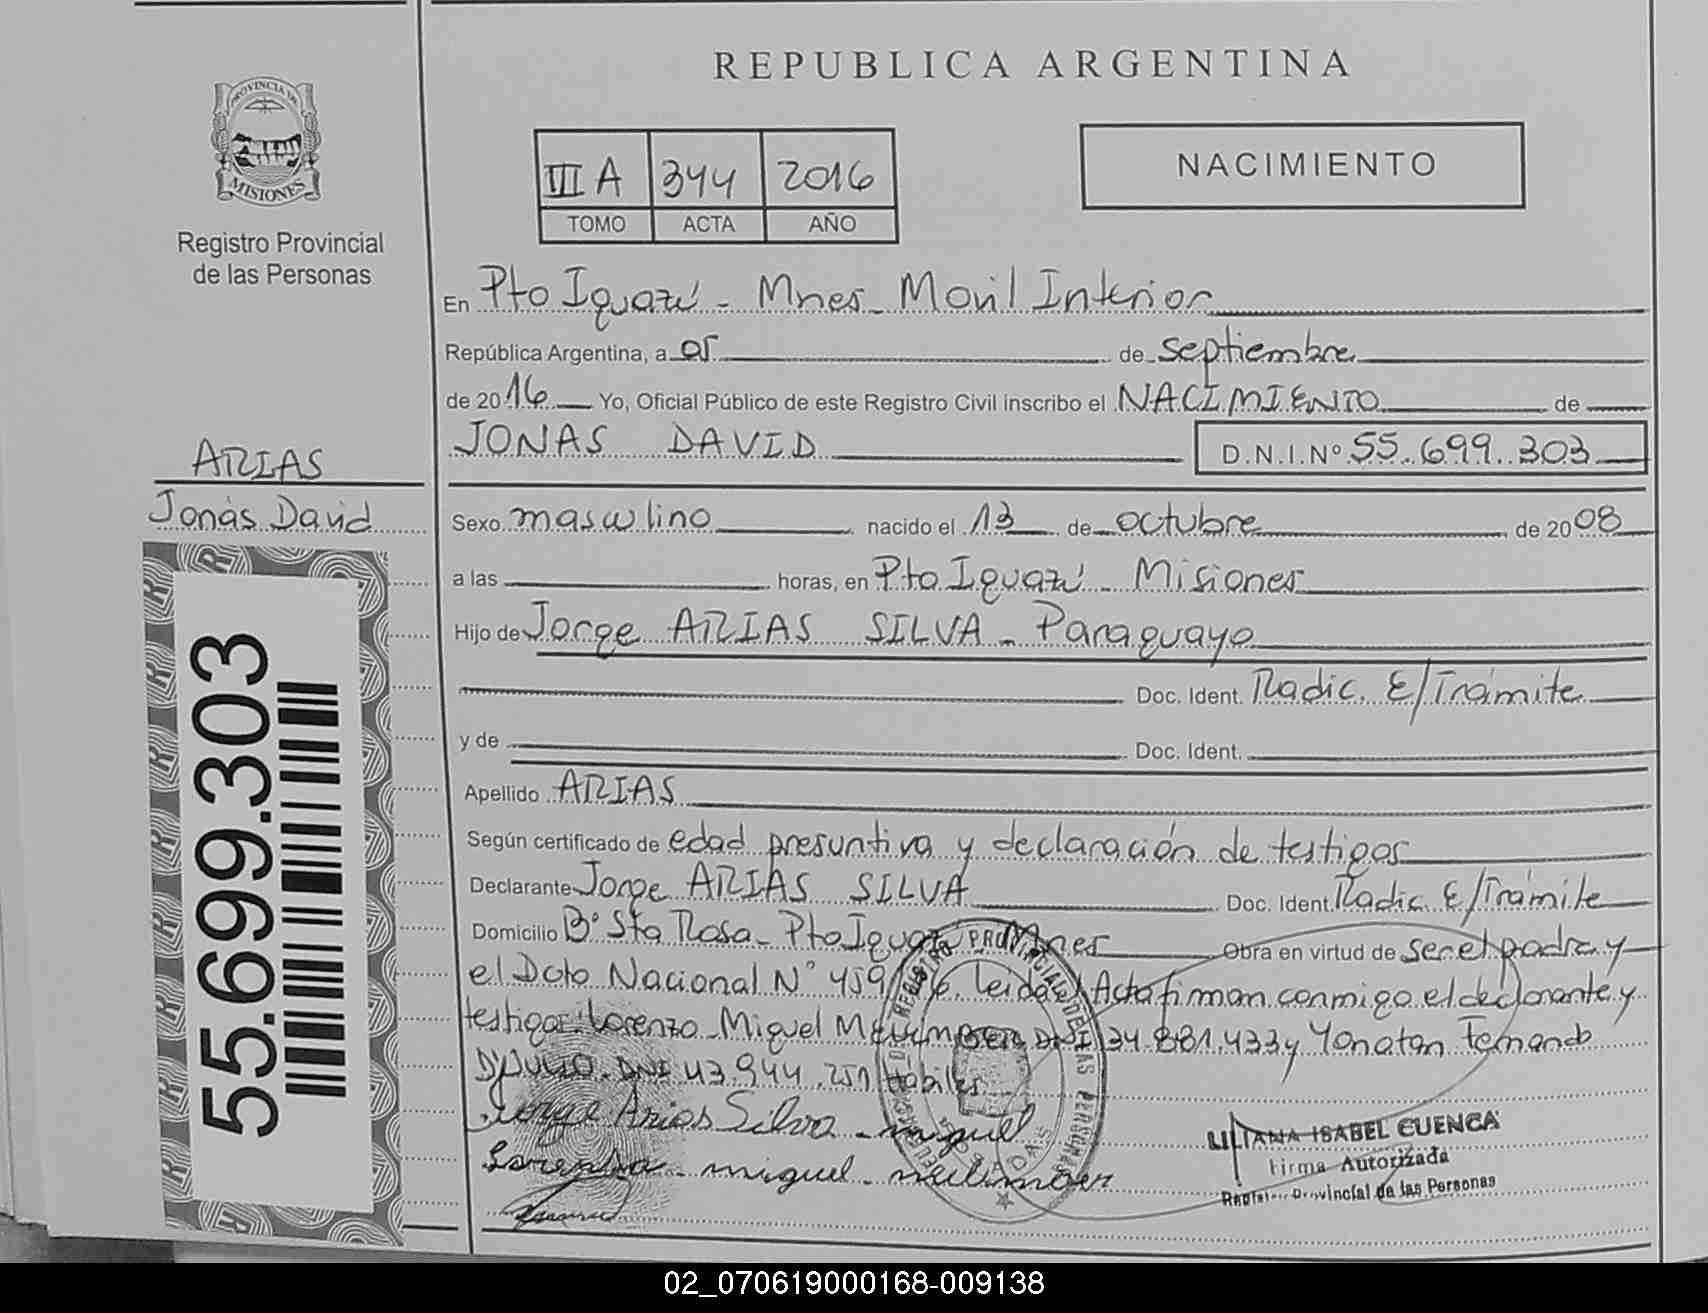 REPUBLICA ARGENTINA
PROVINCIA DE
MISIONES
Registro Provincial
de las Personas
III A 344 2016
TOMO ACTA AÑO
NACIMIENTO
En Pto Iguazú - Mnes - Movil Interior
República Argentina, a 05 de septiembre
de 2016 Yo, Oficial Público de este Registro Civil inscribo el NACIMIENTO de
JONAS DAVID D.N.I.Nº 55.699.303
ARIAS
Jonás David
Sexo masculino nacido el 13 de octubre de 2008
a las horas, en Pto Iguazú - Misiones
Hijo de Jorge ARIAS SILVA - Paraguayo
Doc. Ident. Radic. E/Trámite
y de Doc. Ident.
Apellido ARIAS
Según certificado de edad presuntiva y declaración de testigos
Declarante Jorge ARIAS SILVA Doc. Ident. Radic E/Trámite
Domicilio Bº Sta Rosa - Pto Iguazú Mnes Obra en virtud de ser el padre y
el Dcto Nacional Nº 459/ Leída el Acta firman conmigo el declarante y
testigos: Lorenzo Miguel DNI 34.881.433 y Yonatan Fernando
DNI 43.944.251 Hábiles
Jorge Arias Silva - miguel
Lorenzo - miguel
LILIANA ISABEL CUENCA
Firma Autorizada
Registro Provincial de las Personas
55.699.303
02_070619000168-009138